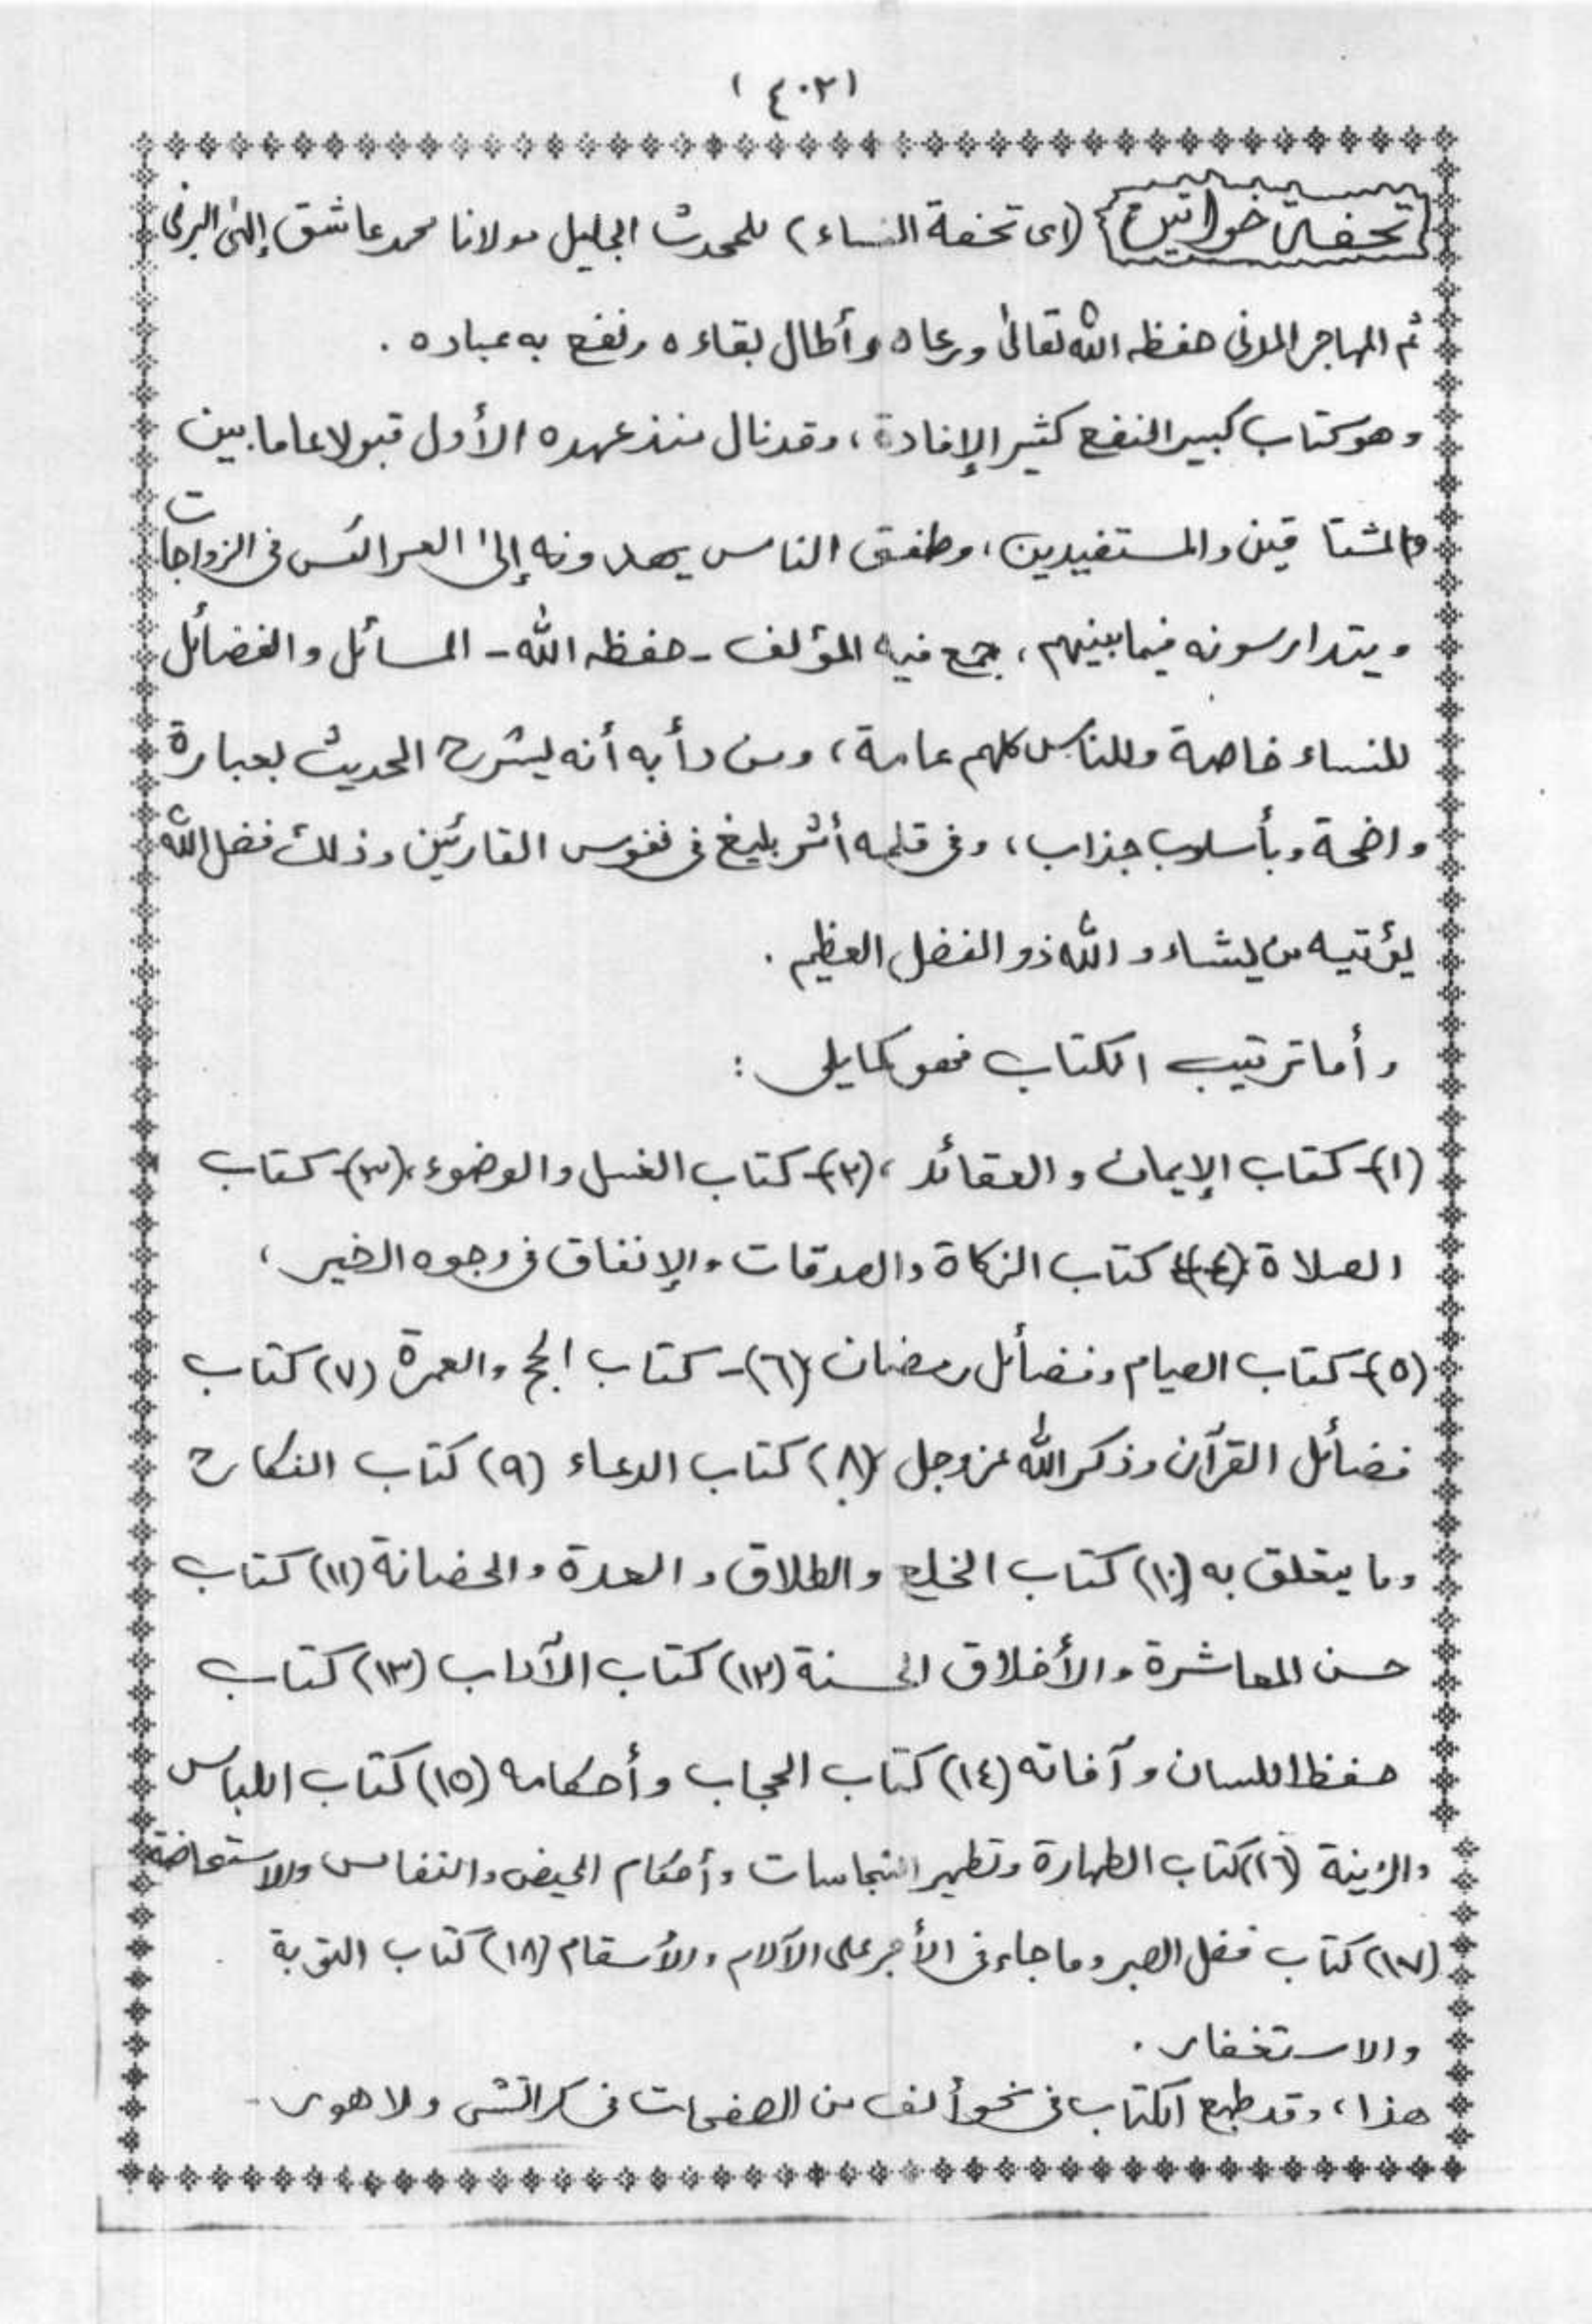 (٤٠٢)
تحفۂ خواتين (اى تحفة النساء) للمحدث الجليل مولانا محمد عاشق إلهى البرنى
ثم المهاجر المدنى حفظه الله تعالىٰ ورعاه وأطال بقاءه ونفع به عباده .
وهو كتاب كبير النفع كثير الإفادة ، وقد نال منذ عهده الأول قبولا عاما بين
المشتاقين والمستفيدين ، وطفق الناس يهدونه إلىٰ العرائس فى الزواجات
ويتدارسونه فيما بينهم ، جمع فيه المؤلف - حفظه الله - المسائل والفضائل
للنساء خاصة وللناس كلهم عامة ، ومن دأبه أنه يشرح الحديث بعبارة
واضحة وبأسلوب جذاب ، وفى قلمه أثر بليغ فى نفوس القارئين وذلك فضل الله
يؤتيه من يشاء والله ذو الفضل العظيم .
وأما ترتيب الكتاب فهو كما يلى :
(١)- كتاب الإيمان والعقائد ، (٢)- كتاب الغسل والوضوء ، (٣)- كتاب
الصلاة (٤) كتاب الزكاة والصدقات والإنفاق فى وجوه الخير ،
(٥)- كتاب الصيام وفضائل رمضان (٦)- كتاب الحج والعمرة (٧) كتاب
فضائل القرآن وذكر الله عز وجل (٨) كتاب الدعاء (٩) كتاب النكاح
وما يتعلق به (١٠) كتاب الخلع والطلاق والعدة والحضانة (١١) كتاب
حسن المعاشرة والأخلاق الحسنة (١٢) كتاب الآداب (١٣) كتاب
حفظ اللسان وآفاته (١٤) كتاب الحجاب وأحكامه (١٥) كتاب اللباس
والزينة (١٦) كتاب الطهارة وتطهير النجاسات وأحكام الحيض والنفاس والاستحاضة
(١٧) كتاب فضل الصبر وما جاء فى الأجر على الآلام والأسقام (١٨) كتاب التوبة
والاستغفار .
هذا ، وقد طبع الكتاب فى نحو ألف من الصفحات فى كراتشى ولاهور -